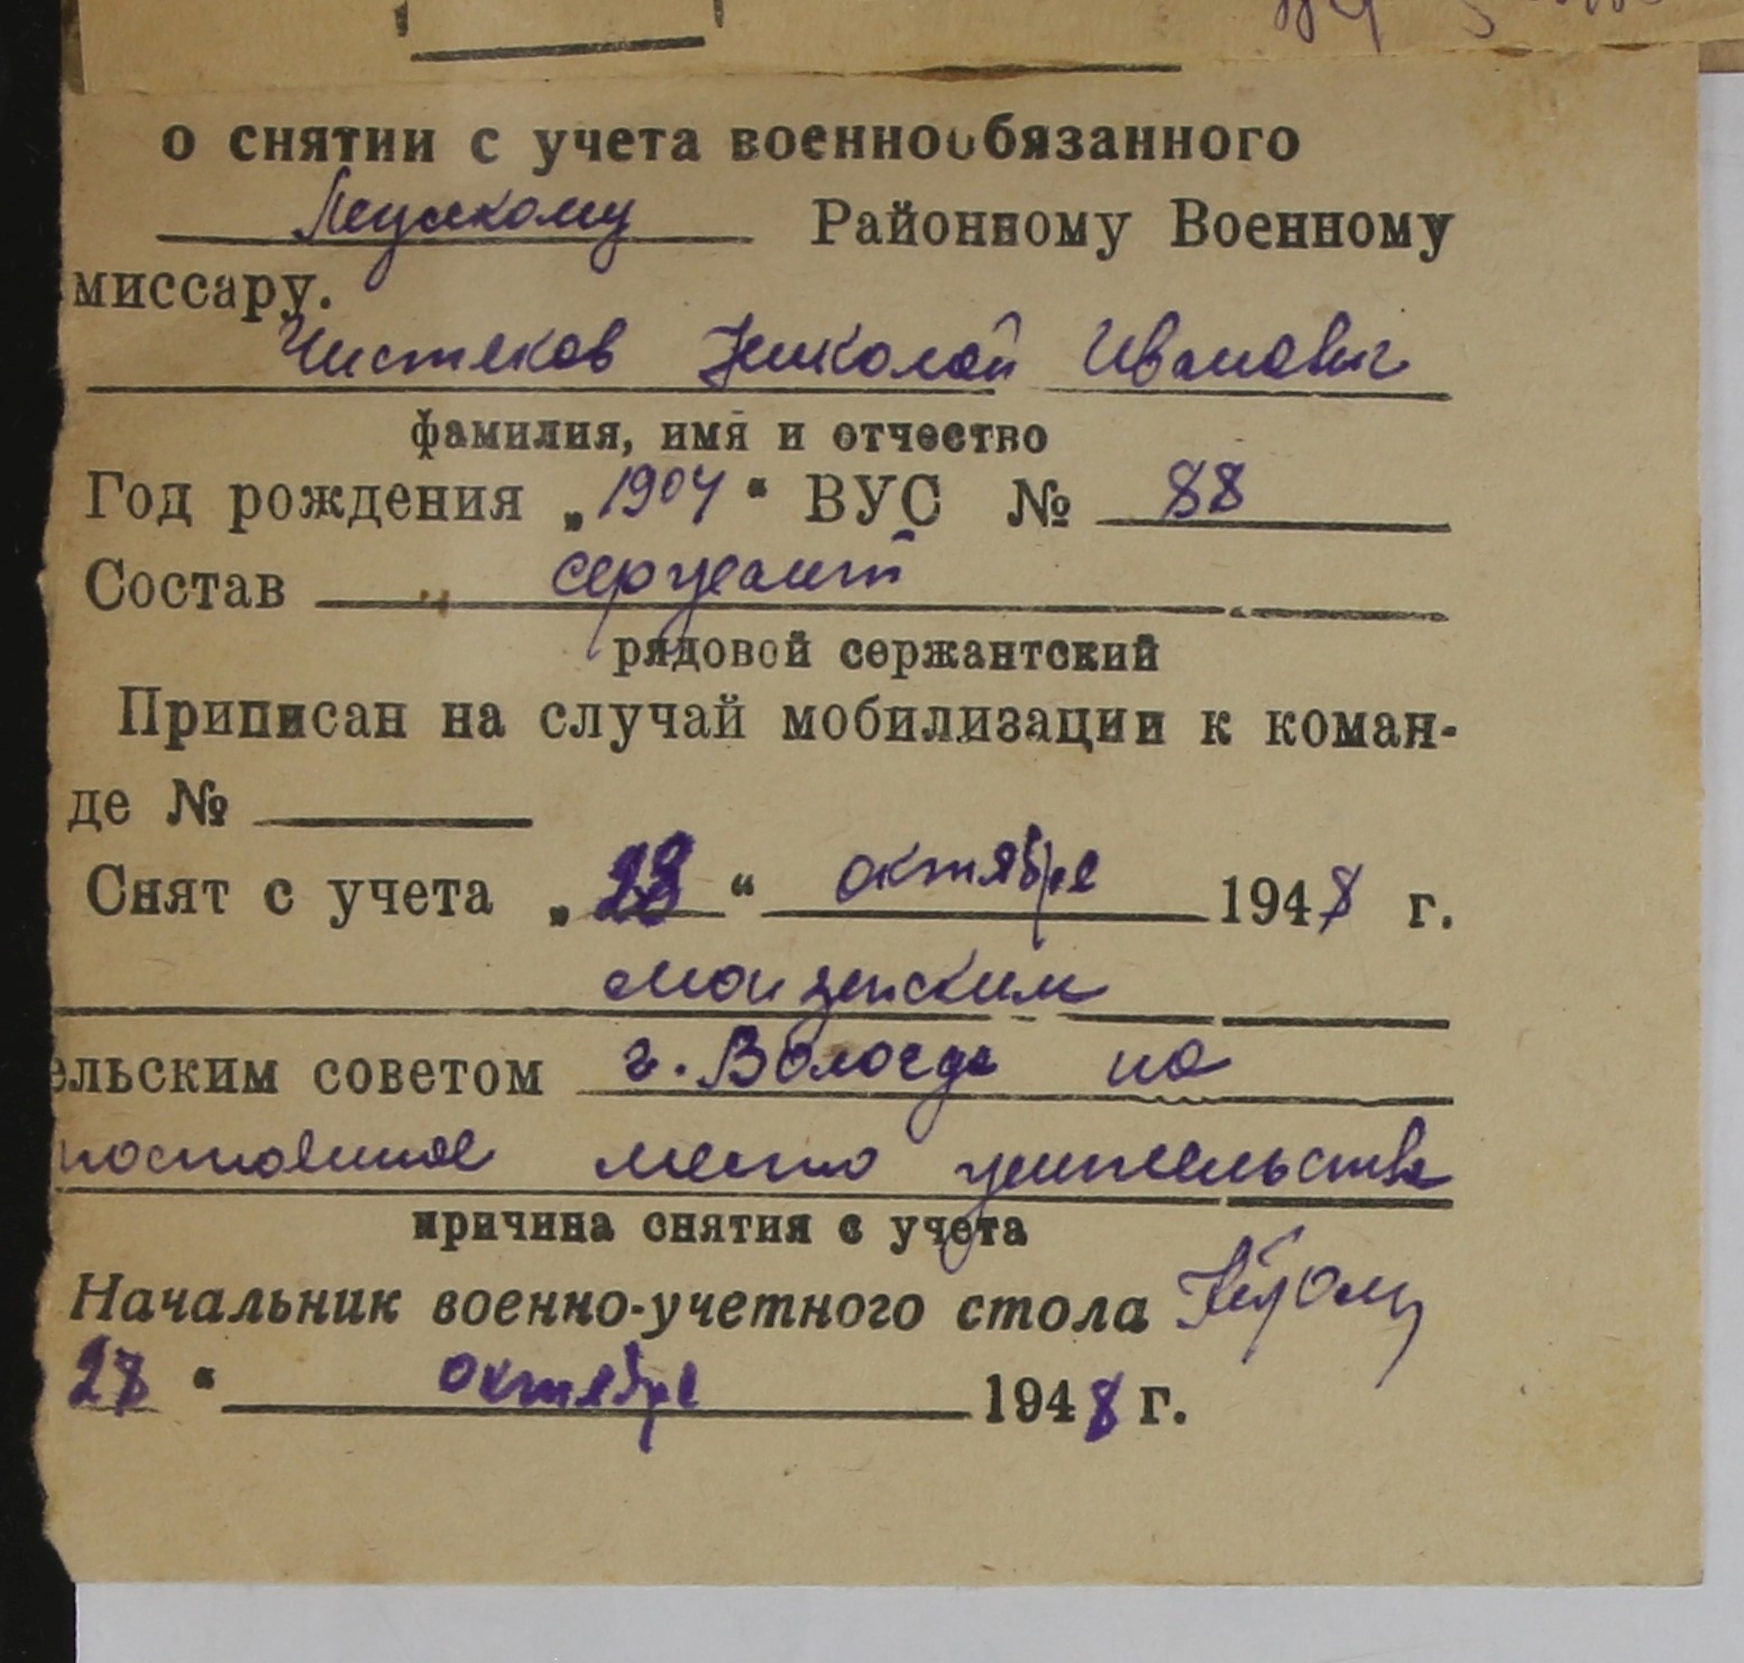 о снятии с учета военнообязанного
Леужскому Районному Военному
миссару.
Чистяков Николай Иванович
фамилия, имя и отчество
Год рождения „1904“ ВУС № 88
Состав сержант
рядовой сержантский
Приписан на случай мобилизации к коман-
де №
Снят с учета „28“ октября 1948 г.
ельским советом г. Вологда на
постоянное место жительства
причина снятия с учета
Начальник военно-учетного стола
28“ октября 1948 г.